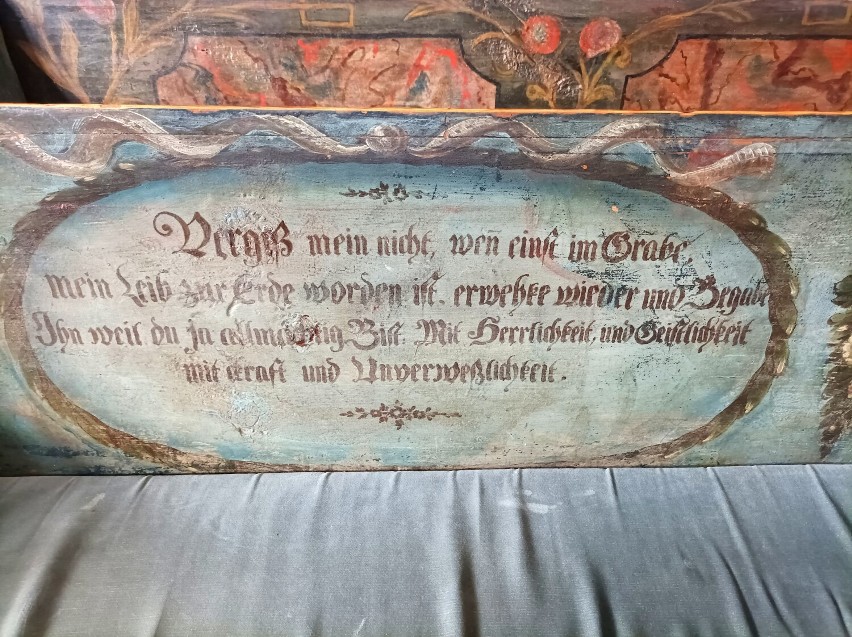 Vergiß mein nicht, weñ einst im Grabe,
mein Leib zur Erde worden ist. erwehke wieder und Begabe
Ihn weil du Ja allmächtig Bist. Mit Herrlichkeit, und Geistlichkeit
mit kraft und Unverweßlichkeit.